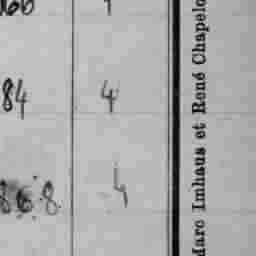 84 4
868 4
Marc Imhaus et René Chapelo